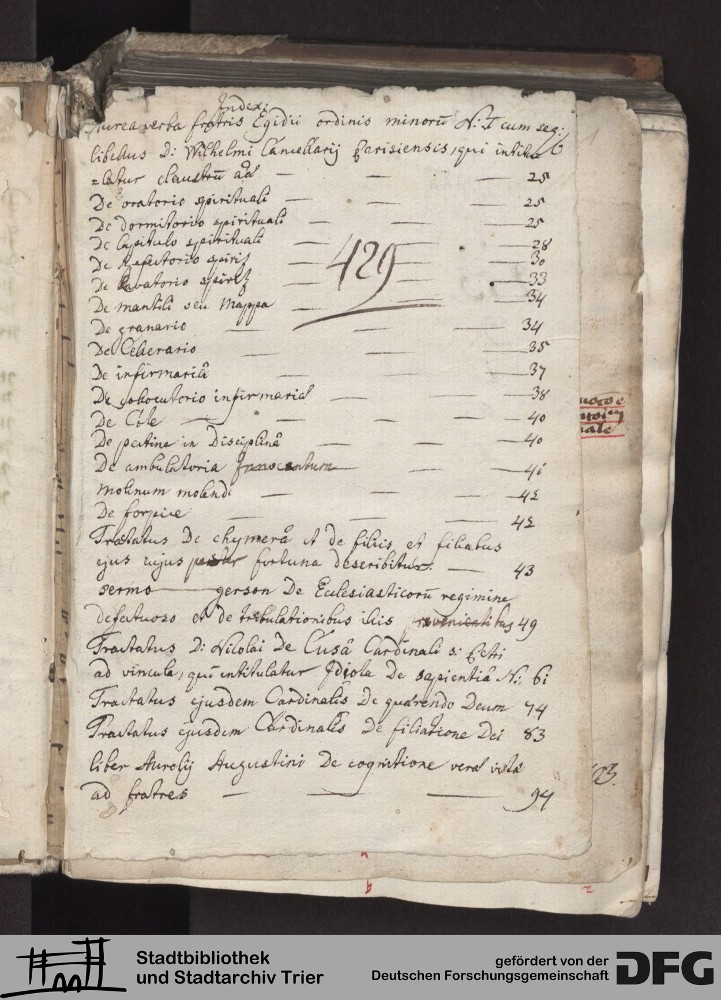 Index
Aurea verba fratris Egidii ordinis minorū N: I cum seq:
libellus D: Wilhelmi Cancellarij Parisiensis, qui intitu
=latur claustrū aā — — — 25
De oratorio spirituali — — — 25
De dormitorio spirituali — — — 25
De Capitulo spirituali — — — 28
De Refectorio spirit — — — 30
De Lavatorio spirit — — — 33
De mantili seu mappa — — — 34
429
De granario — — — 34
De Cellerario — — — 35
De infirmariâ — — — 37
De locutorio infirmariæ — — — 38
De Cole — — — 40
De pectine in Disciplinâ — — — 40
De ambulatoria — — 41
molinum molendi — — — 42
De forpice — — — 42
Tractatus De chymerâ et de filiis et filiabus
ejus cujus fortuna describitur — 43
sermo gerson De Ecclesiasticorū regimine
defectuoso et de tribulationibus iliis 49
Tractatus D: Nicolai De Cusâ Cardinali s: Petri
ad vincula, qui intitulatur Idiota De sapientiâ N: 61
Tractatus ejusdem Cardinalis De quærendo Deum 74
Tractatus ejusdem Cardinalis De filiatione Dei 83
liber Aurelij Augustini De cognitione veræ vitæ
ad fratres — — — 94
Stadtbibliothek
und Stadtarchiv Trier
gefördert von der
Deutschen Forschungsgemeinschaft
DFG